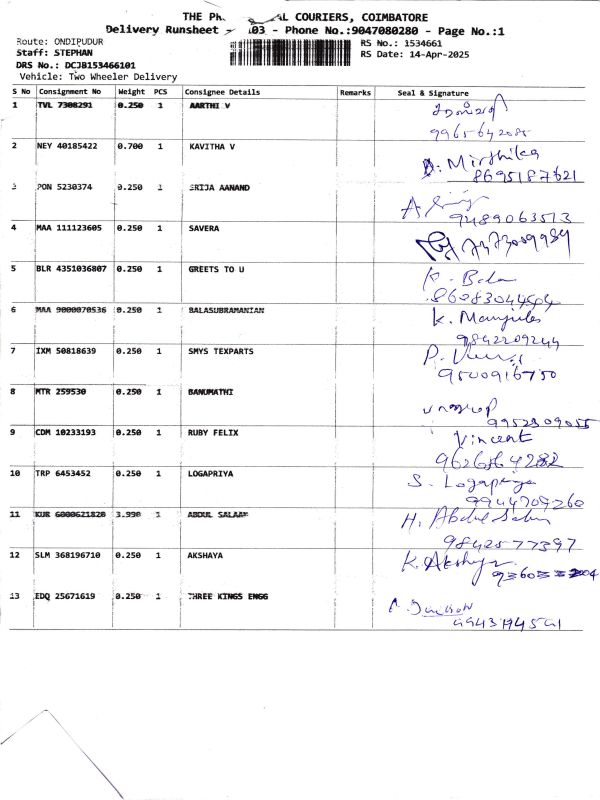 THE PR AL COURIERS, COIMBATORE
Delivery Runsheet 03 - Phone No.:9047080280 - Page No.:1
Route: ONDIPUDUR
Staff: STEPHAN
DRS No.: DCJB153466101
Vehicle: Two Wheeler Delivery
RS No.: 1534661
RS Date: 14-Apr-2025
S No Consignment No Weight PCS Consignee Details Remarks Seal & Signature
1 TVL 7308291 0.250 1 AARTHI V
9965642085
2 NEY 40185422 0.700 1 KAVITHA V D. Mirthika
8695187621
3 PON 5230374 0.250 1 SRIJA AANAND
9489063513
4 MAA 111123605 0.250 1 SAVERA 7373009984
5 BLR 4351036807 0.250 1 GREETS TO U K. Bala
8608304494
6 MAA 9000070536 0.250 1 BALASUBRAMANIAN K. Manjula
9842209244
7 IXM 50818639 0.250 1 SMYS TEXPARTS
9500916750
8 MTR 259530 0.250 1 BANUMATHI
9952309055
9 CDM 10233193 0.250 1 RUBY FELIX Vincent
9626564282
10 TRP 6453452 0.250 1 LOGAPRIYA S. Logapriya
9944709260
11 KUR 6000621820 3.990 1 ABDUL SALAAM H. Abdul Salam
9842577397
12 SLM 368196710 0.250 1 AKSHAYA K. Akshaya
13 EDQ 25671619 0.250 1 THREE KINGS ENGG